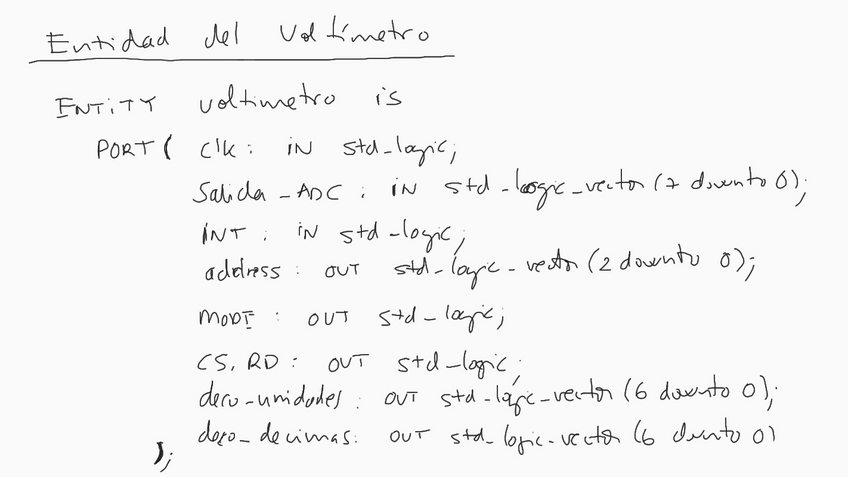 Entidad del Voltímetro
ENTITY voltimetro is
PORT( Clk: IN std_logic;
Salida_ADC: IN std_logic_vector(7 downto 0);
INT: IN std_logic;
address: OUT std_logic_vector(2 downto 0);
MODE: OUT std_logic;
CS, RD: OUT std_logic;
deco_unidades: OUT std_logic_vector(6 downto 0);
deco_decimas: OUT std_logic_vector(6 dwnto 0)
);